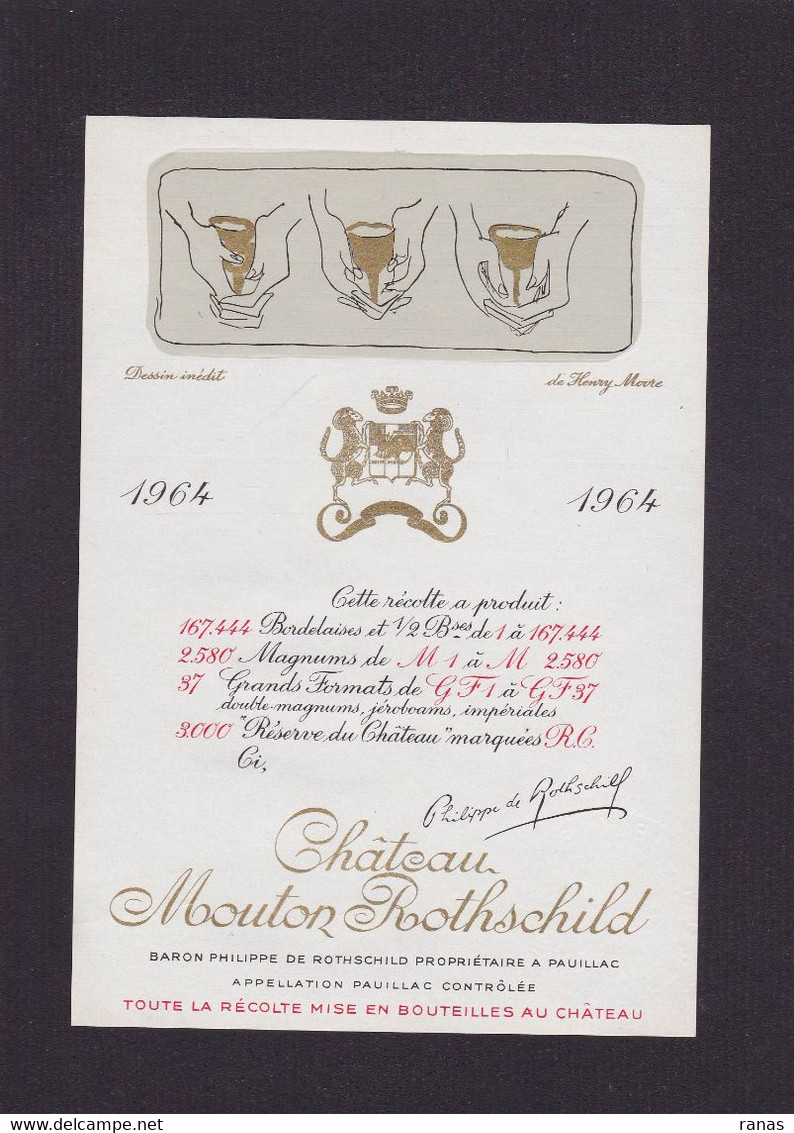 Dessin inédit de Henry Moore
1964 1964
Cette récolte a produit :
167.444 Bordelaises et 1/2 Bses de 1 à 167.444
2.580 Magnums de M 1 à M 2.580
37 Grands Formats de G F 1 à G F 37
double-magnums, jéroboams, impériales
3.000 "Réserve du Château" marquées R.C.
Ci,
Philippe de Rothschild
Château
Mouton Rothschild
BARON PHILIPPE DE ROTHSCHILD PROPRIÉTAIRE A PAUILLAC
APPELLATION PAUILLAC CONTRÔLÉE
TOUTE LA RÉCOLTE MISE EN BOUTEILLES AU CHÂTEAU
ranas